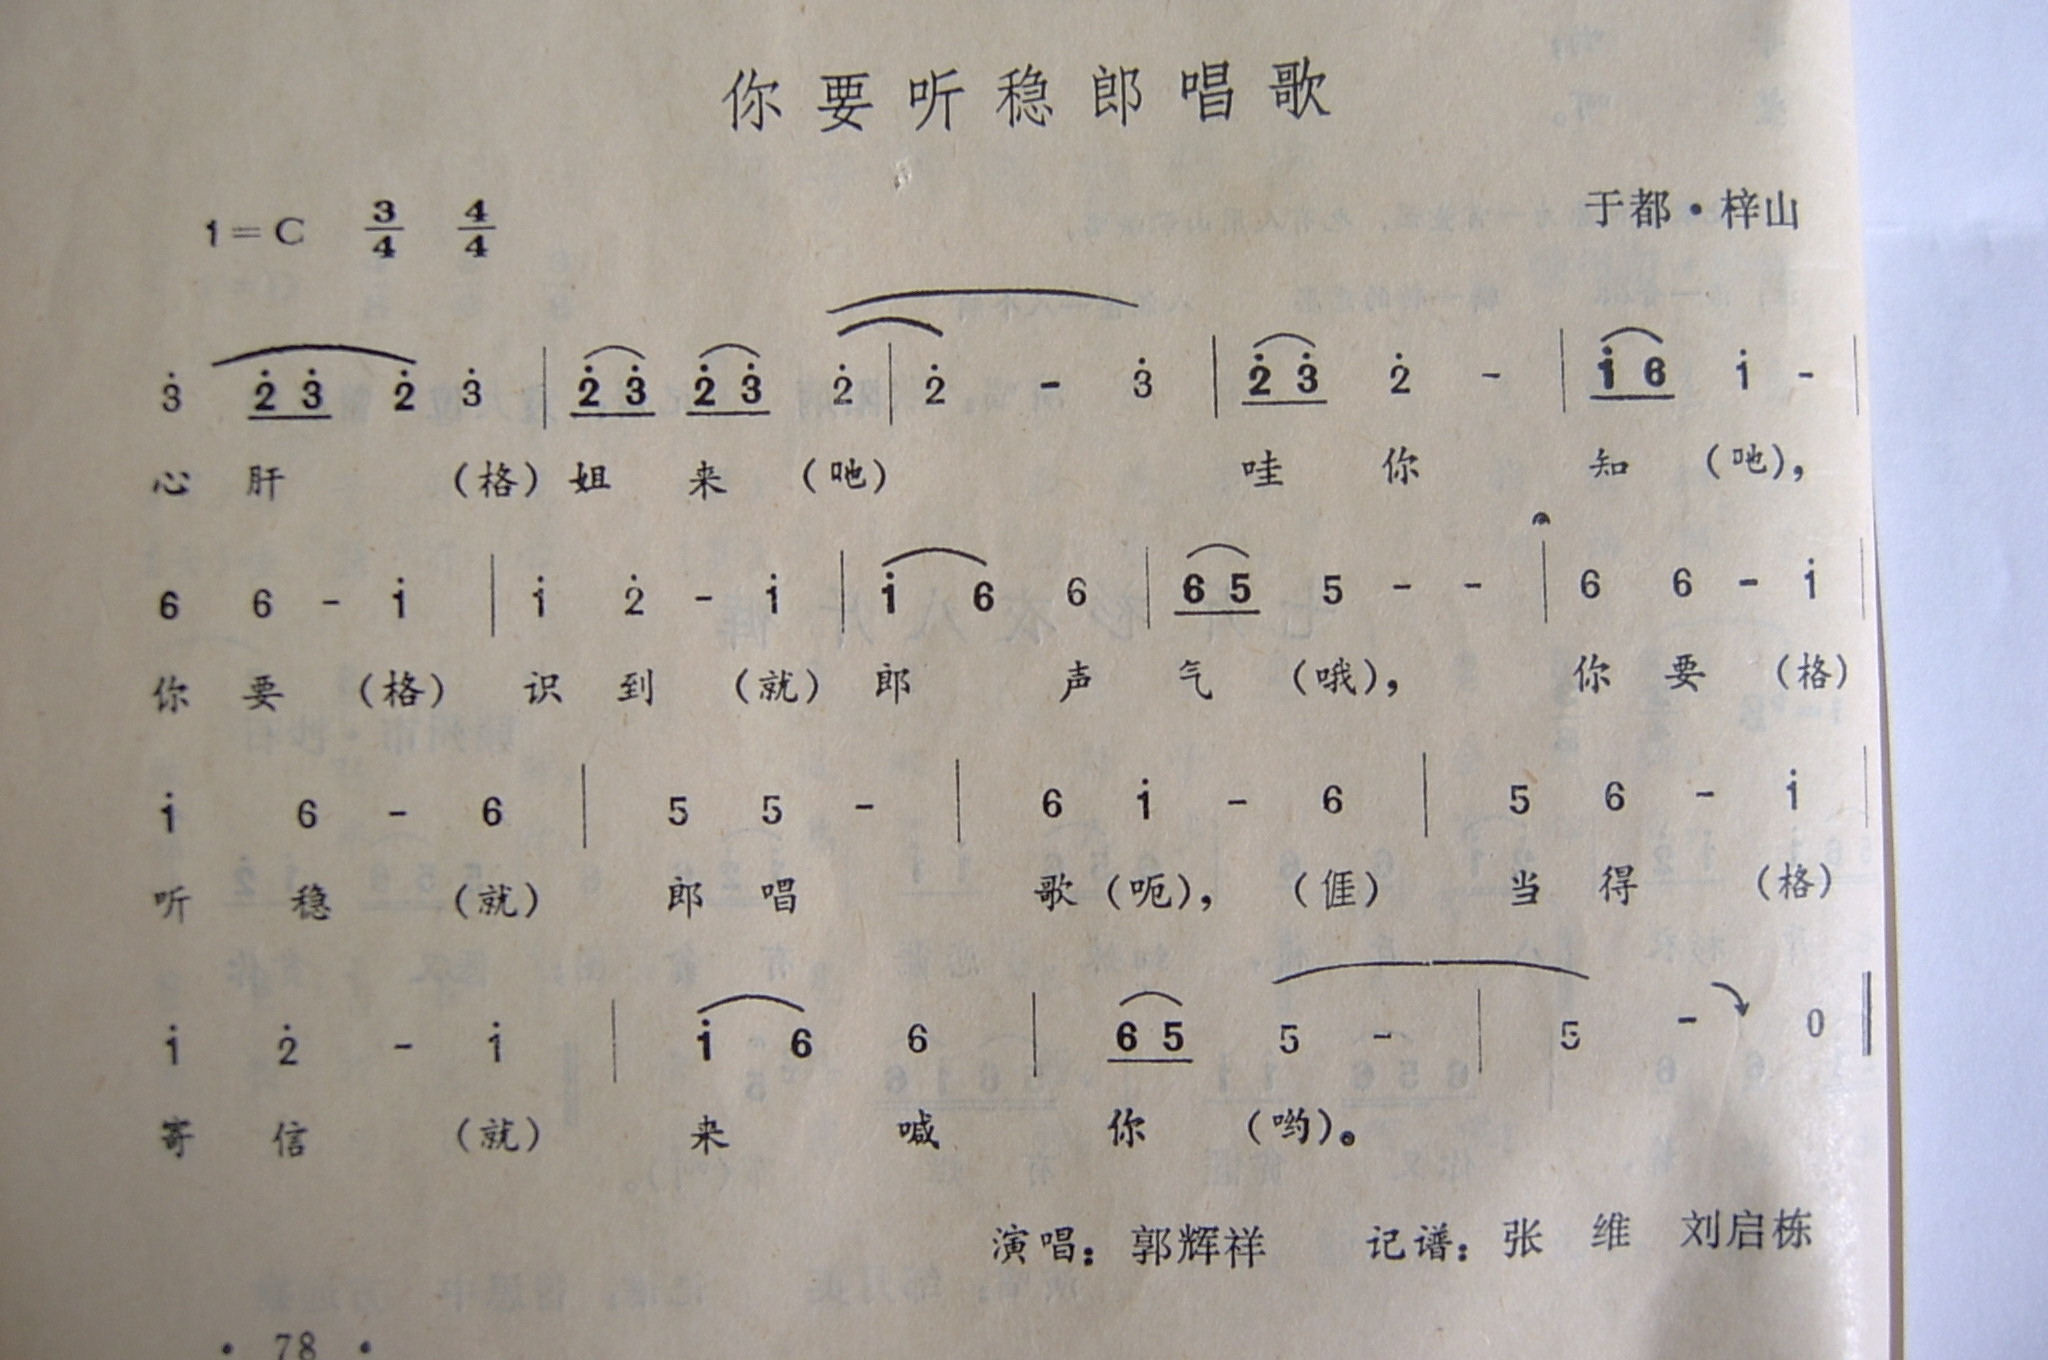 你要听稳郎唱歌
1=C 3/4 4/4 于都·梓山
3̇ 2̇ 3̇ 2̇ 3̇ | 2̇ 3̇ 2̇ 3̇ 2̇ | 2̇ - 3̇ | 2̇ 3̇ 2̇ - | 1̇ 6 1̇ - |
心肝 (格)姐来 (吔) 哇你 知 (吔),
6 6 - 1̇ | 1̇ 2̇ - 1̇ | 1̇ 6 6 | 6 5 5 - - | 6 6 - 1̇ |
你要 (格) 识到 (就) 郎 声气 (哦), 你要 (格)
1̇ 6 - 6 | 5 5 - | 6 1̇ - 6 | 5 6 - 1̇ |
听稳 (就) 郎唱 歌(呃), (𠊎) 当得 (格)
1̇ 2̇ - 1̇ | 1̇ 6 6 | 6 5 5 - | 5 - 0 ‖
寄信 (就) 来 喊 你 (哟)。
演唱:郭辉祥 记谱:张 维 刘启栋
· 78 ·